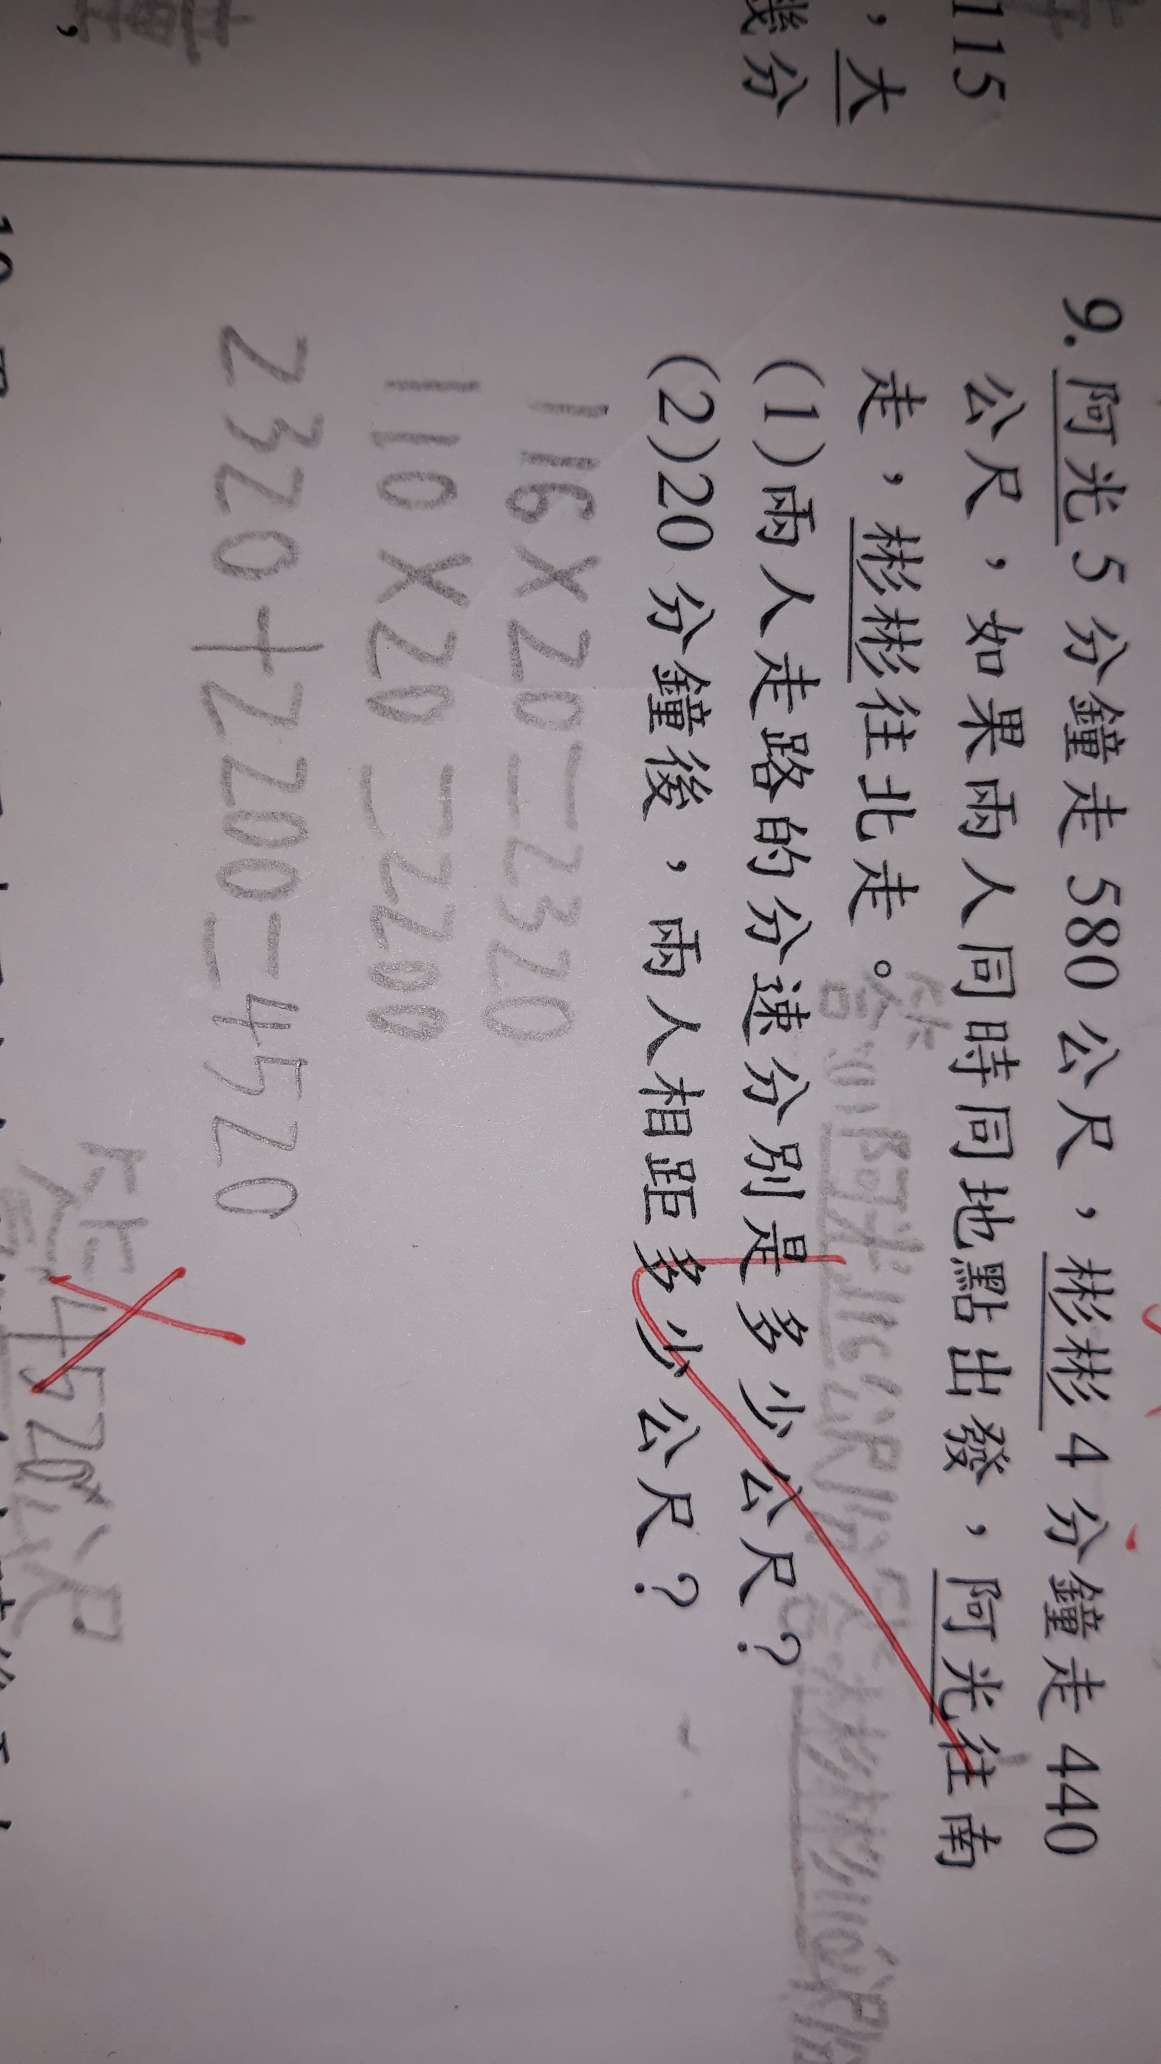 115
，大
幾分
9.阿光5分鐘走580公尺，彬彬4分鐘走440
公尺，如果兩人同時同地點出發，阿光往南
走，彬彬往北走。
答:(1)阿光116公尺/分 彬彬110公尺/分
(1)兩人走路的分速分別是多少公尺？
(2)20分鐘後，兩人相距多少公尺？
116×20=2320
110×20=2200
2320+2200=4520
答:4520公尺